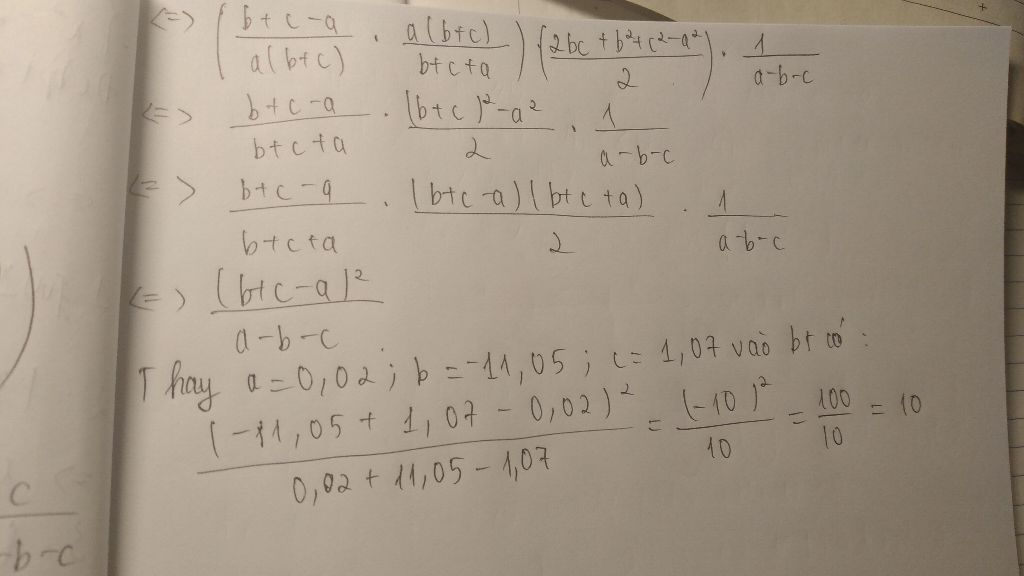 <=> ( (b+c-a)/(a(b+c)) . (a(b+c))/(b+c+a) ) ( (2bc+b²+c²-a²)/2 ) . 1/(a-b-c)
<=> (b+c-a)/(b+c+a) . ((b+c)²-a²)/2 . 1/(a-b-c)
<=> (b+c-a)/(b+c+a) . ((b+c-a)(b+c+a))/2 . 1/(a-b-c)
<=> (b+c-a)²/(a-b-c)
Thay a=0,02; b=-11,05; c=1,07 vào bt có:
(-11,05+1,07-0,02)²/(0,02+11,05-1,07) = (-10)²/10 = 100/10 = 10
c/(-b-c)